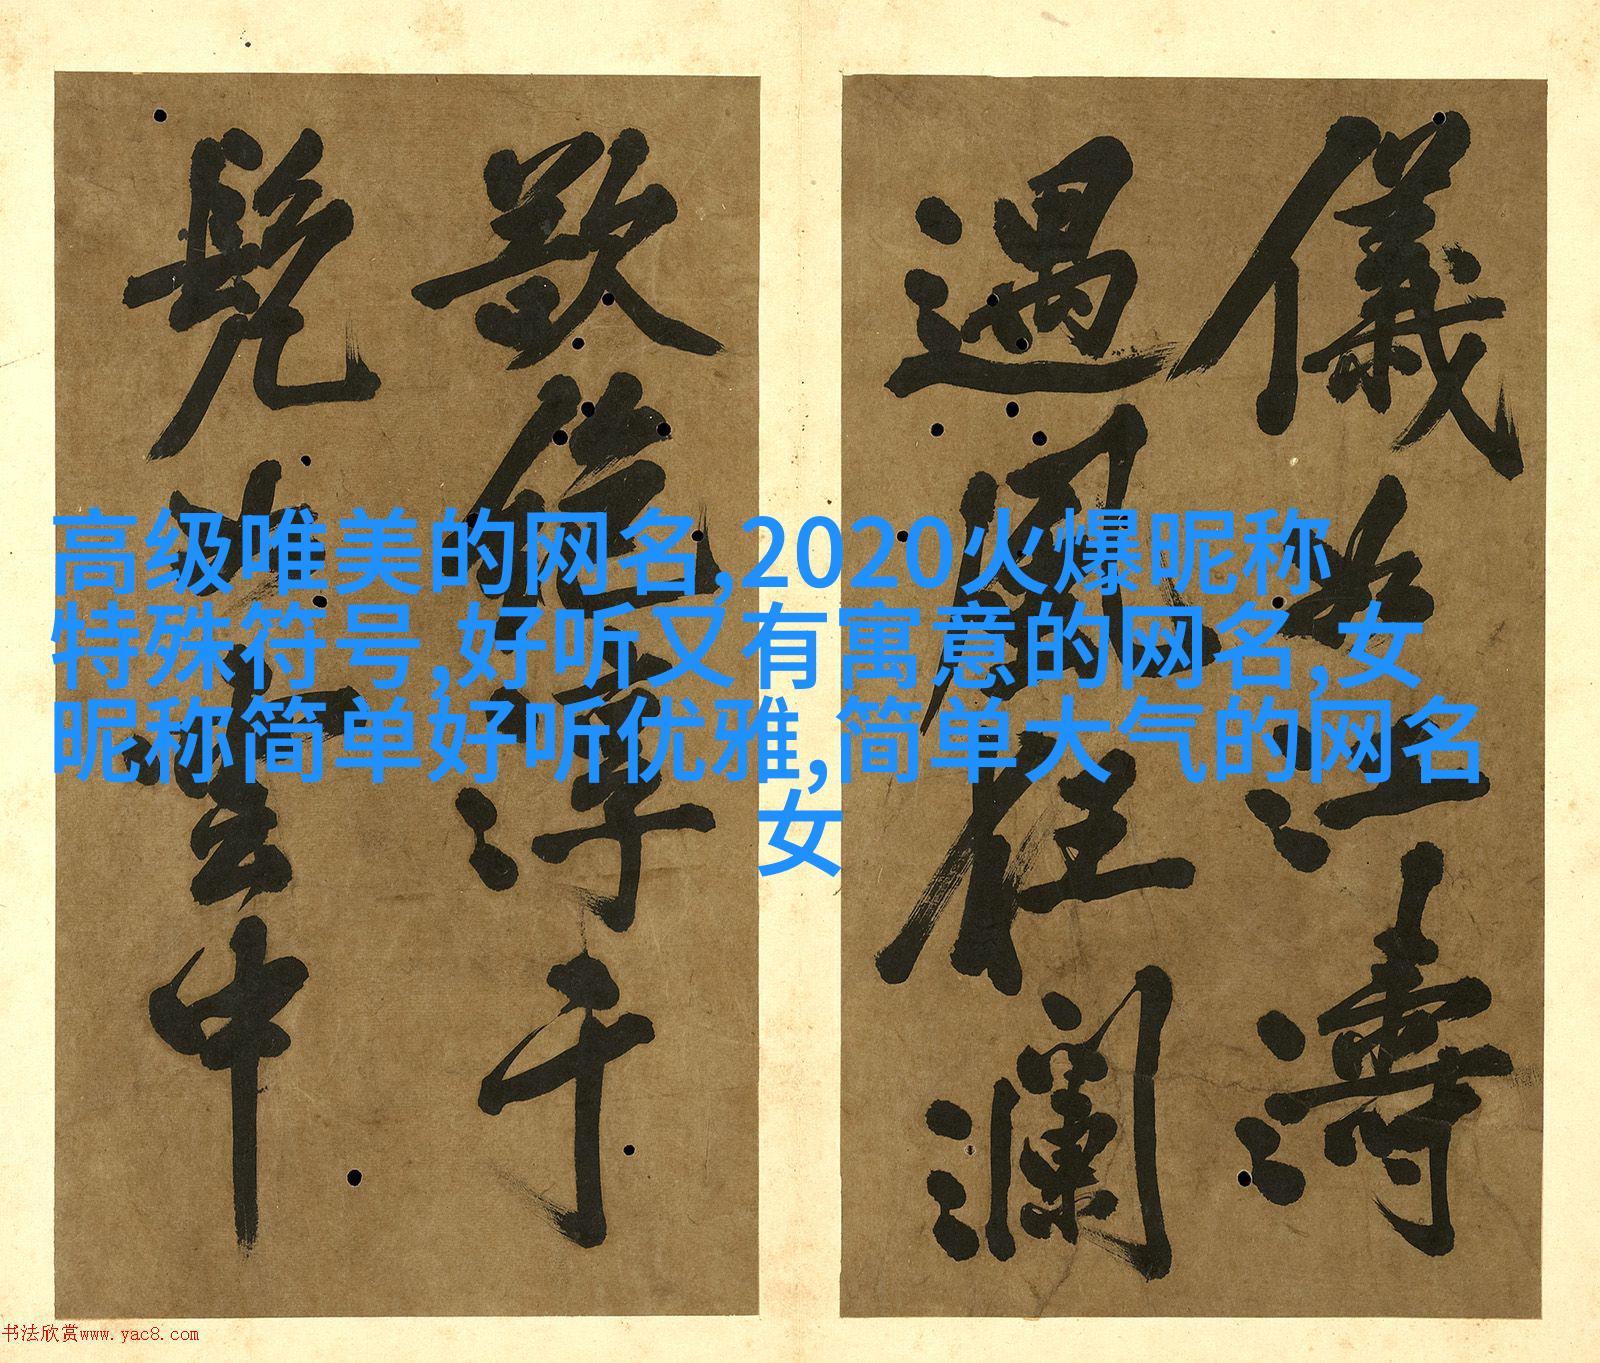 高级唯美的网名,2020火爆昵称
特殊符号,好听又有寓意的网名,女
昵称简单好听优雅,简单大气的网名
女
儀江濤
遇風瀾
淳于
髡中
书法欣赏www.yac8.com